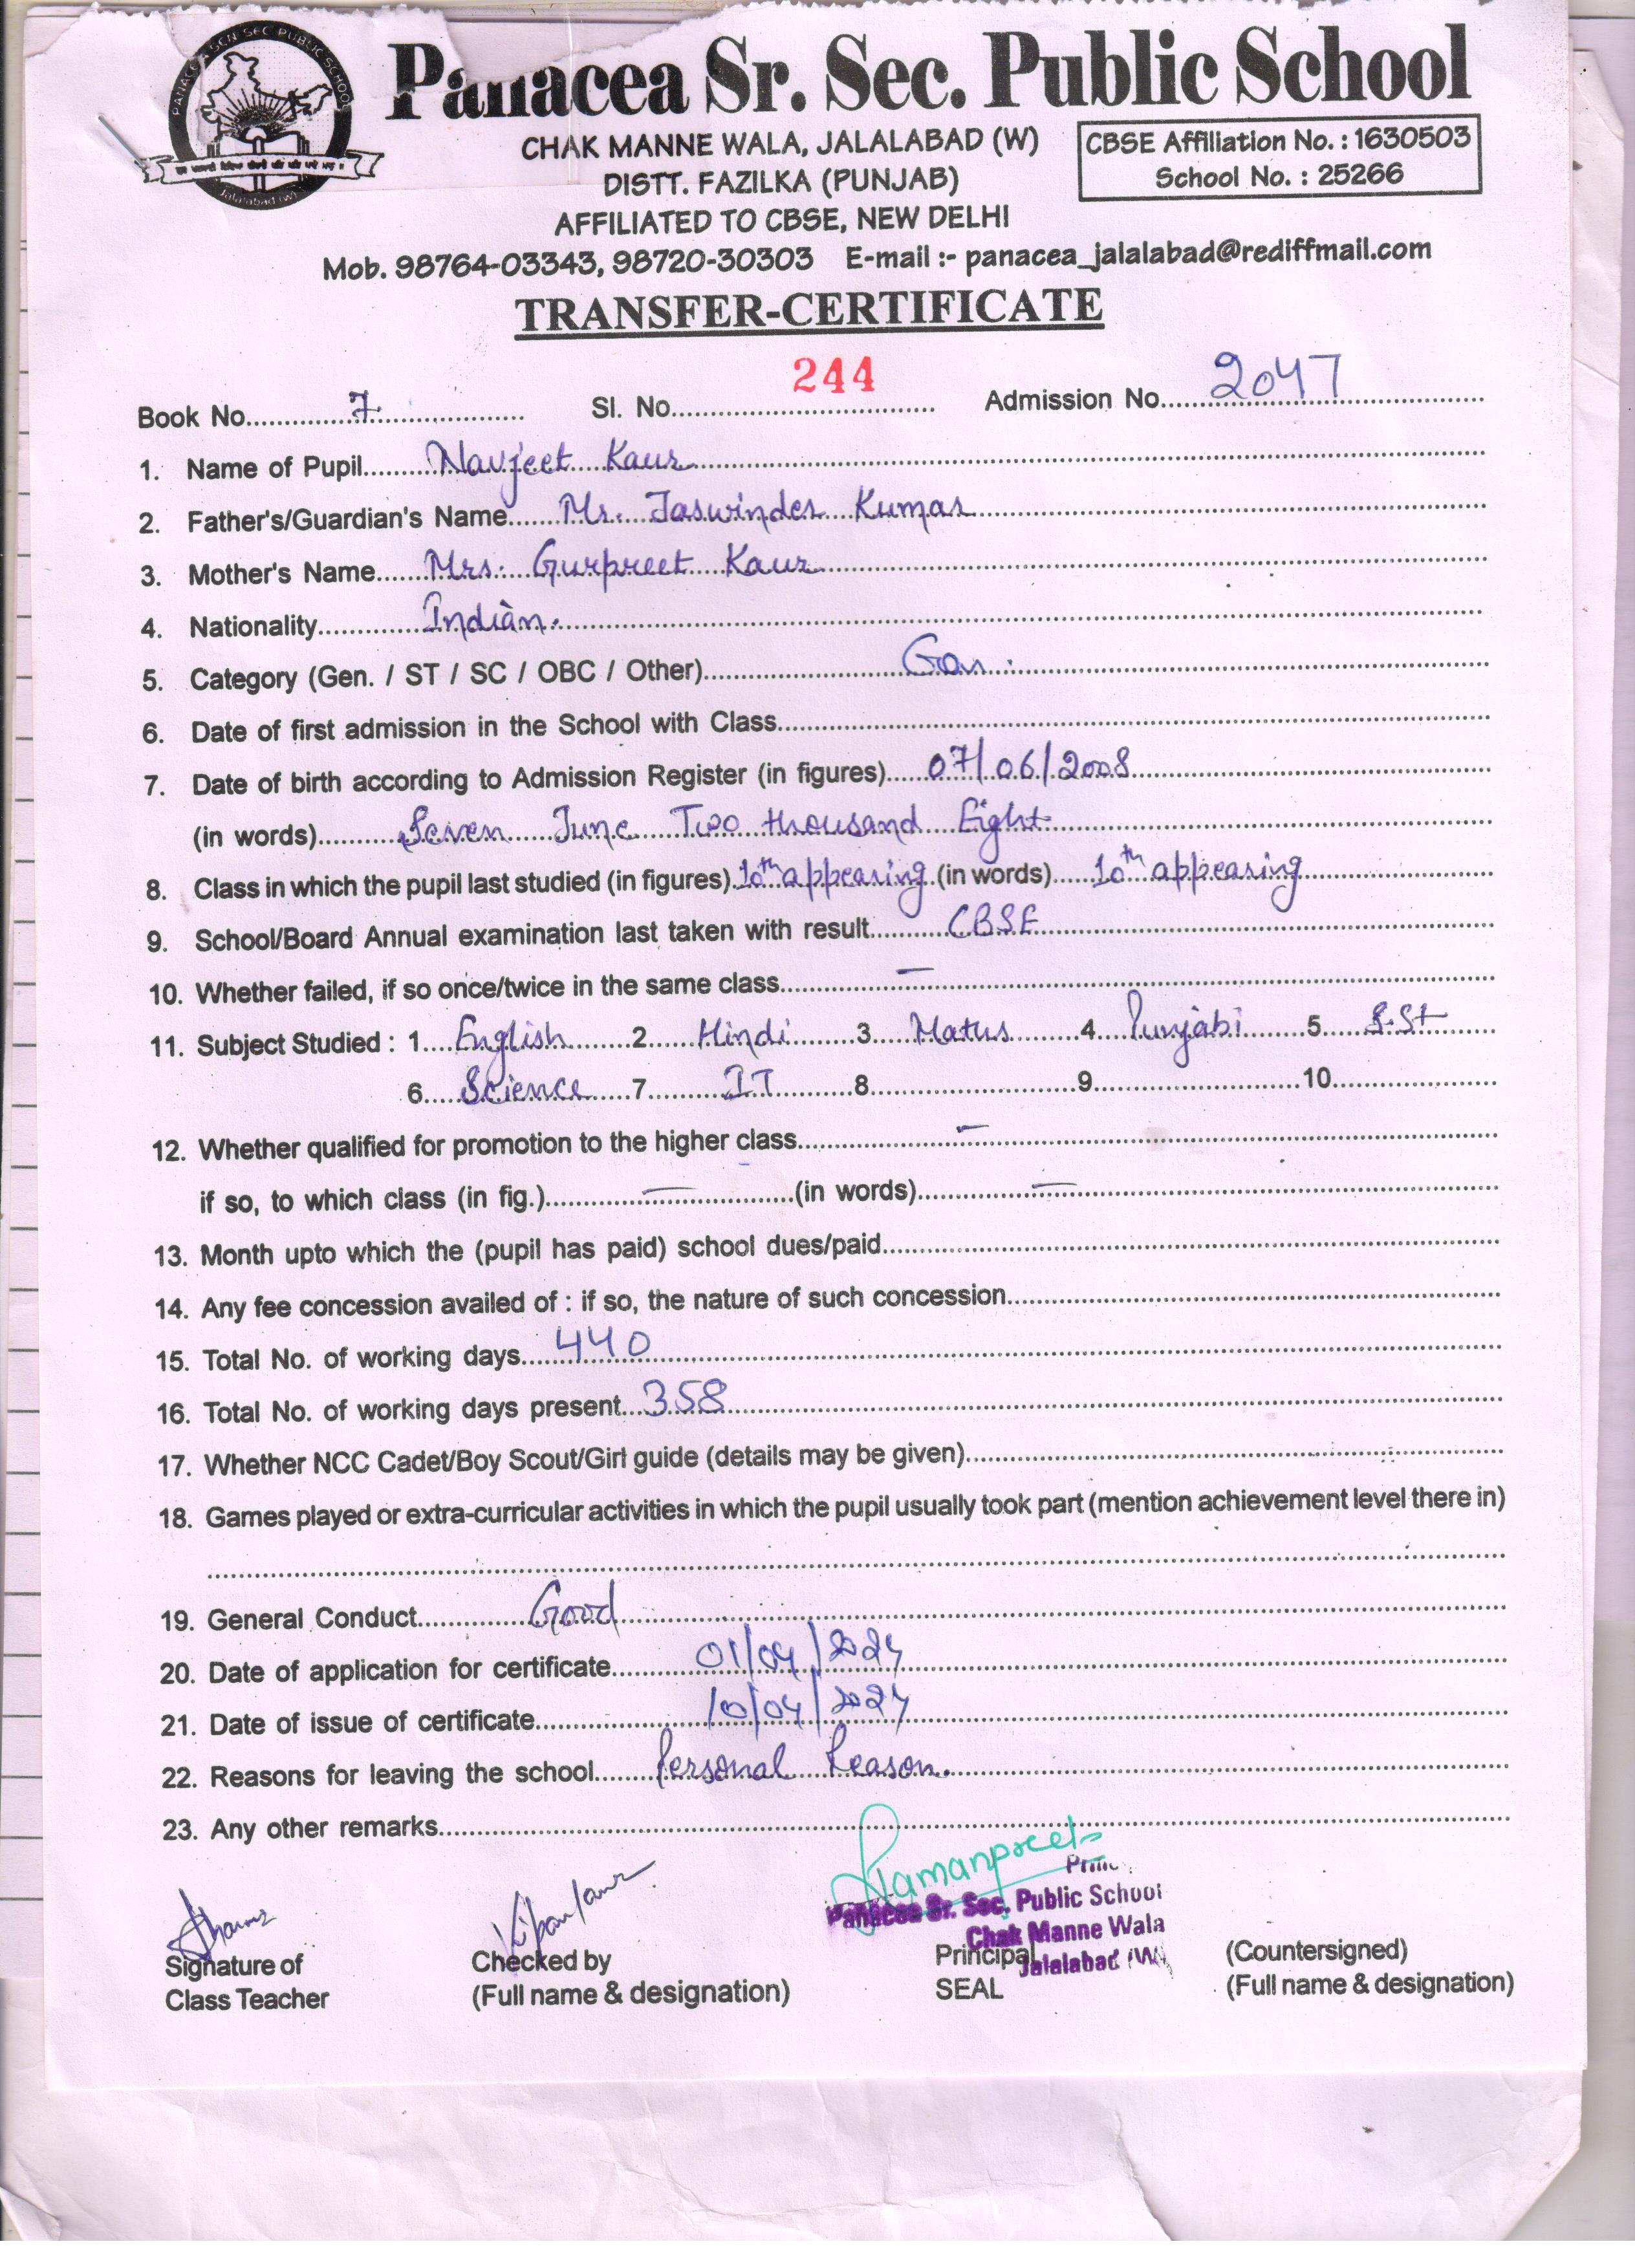 PANACEA SEN SEC PUBLIC SCHOOL
Jalalabad (W)
Panacea Sr. Sec. Public School
CHAK MANNE WALA, JALALABAD (W)
DISTT. FAZILKA (PUNJAB)
AFFILIATED TO CBSE, NEW DELHI
CBSE Affiliation No. : 1630503
School No. : 25266
Mob. 98764-03343, 98720-30303 E-mail :- panacea_jalalabad@rediffmail.com
TRANSFER-CERTIFICATE
Book No. 7 Sl. No. 244 Admission No. 2047
1. Name of Pupil Navjeet Kaur
2. Father's/Guardian's Name Mr. Jaswinder Kumar
3. Mother's Name Mrs. Gurpreet Kaur
4. Nationality Indian.
5. Category (Gen. / ST / SC / OBC / Other) Gen.
6. Date of first admission in the School with Class
7. Date of birth according to Admission Register (in figures) 07/06/2008
(in words) Seven June Two thousand Eight
8. Class in which the pupil last studied (in figures) 10th appearing (in words) 10th appearing
9. School/Board Annual examination last taken with result CBSE
10. Whether failed, if so once/twice in the same class —
11. Subject Studied : 1 English 2 Hindi 3 Maths 4 Punjabi 5 S.St
6 Science 7 IT 8 9 10
12. Whether qualified for promotion to the higher class —
if so, to which class (in fig.) — (in words) —
13. Month upto which the (pupil has paid) school dues/paid
14. Any fee concession availed of : if so, the nature of such concession
15. Total No. of working days 440
16. Total No. of working days present 358
17. Whether NCC Cadet/Boy Scout/Girl guide (details may be given)
18. Games played or extra-curricular activities in which the pupil usually took part (mention achievement level there in)
19. General Conduct Good
20. Date of application for certificate 01/04/2024
21. Date of issue of certificate 10/04/2024
22. Reasons for leaving the school Personal Reason.
23. Any other remarks
Panacea Sr. Sec. Public School
Chak Manne Wala
Jalalabad (W)
Signature of Checked by Principal (Countersigned)
Class Teacher (Full name & designation) SEAL (Full name & designation)